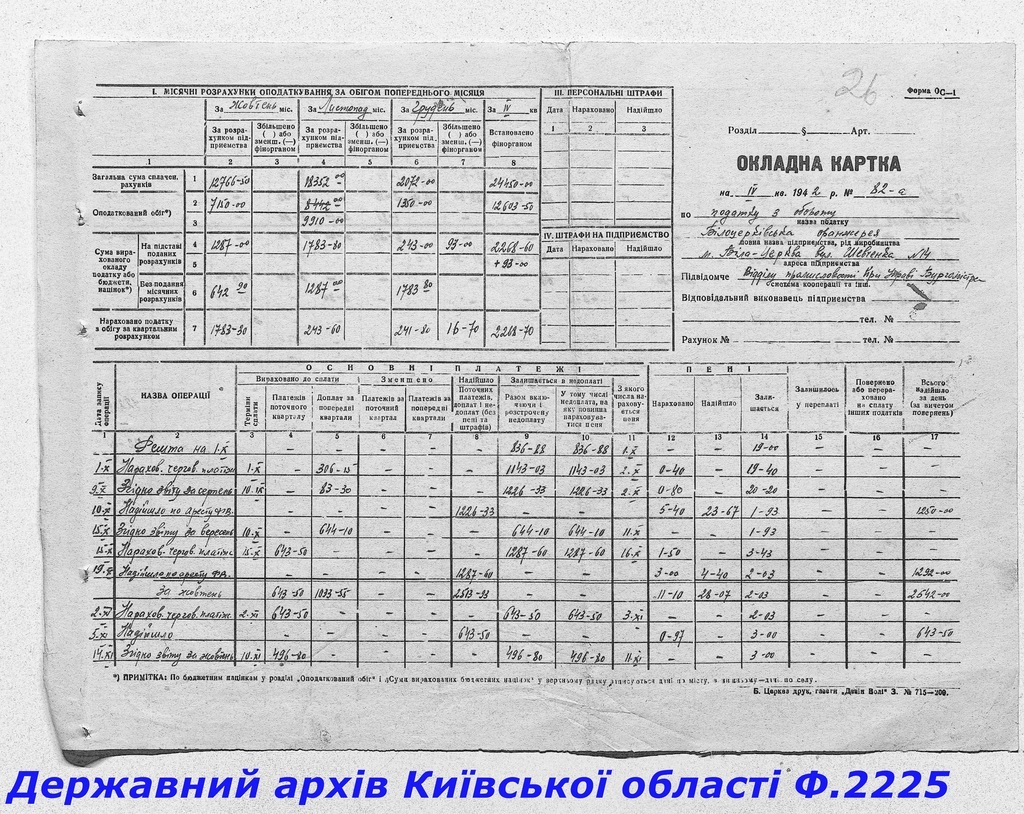 26
Форма ОС—1
I. МІСЯЧНІ РОЗРАХУНКИ ОПОДАТКУВАННЯ ЗА ОБІГОМ ПОПЕРЕДНЬОГО МІСЯЦЯ
За Жовтень міс. За Листопад міс. За Грудень міс. За IV кв
За розра- хунком під- приємства Збільшено ( ) або зменш. (—) фінорганом За розра- хунком під- приємства Збільшено ( ) або зменш. (—) фінорганом За розра- хунком під- приємства Збільшено ( ) або зменш. (—) фінорганом Встановлено фінорганом
1 2 3 4 5 6 7 8
Загальна сума сплачен. рахунків 1 12766-50 18352 00 2072-00 24450-00
Оподаткований обіг*) 2 7150-00 8442 00 1350-00 12603-50
3 9910-00
Сума вира- хованого окладу податку або бюджетн. націнок*)
На підставі поданих розрахунків 4 1287-00 1783-80 243-00 93-00 2268-60
5 +93-00
Без подання місячних розрахунків 6 642 90 1287 00 1783 80
Нараховано податку з обігу за квартальним розрахунком 7 1783-30 243-60 241-80 16-70 2268-70
III. ПЕРСОНАЛЬНІ ШТРАФИ
Дата Нараховано Надійшло
1 2 3
IV. ШТРАФИ НА ПІДПРИЄМСТВО
Дата Нараховано Надійшло
Розділ § Арт.
ОКЛАДНА КАРТКА
на IV кв. 1942 р. № 82-а
по податку з обороту
назва податку
Білоцерківська оранжерея
повна назва підприємства, рід виробництва
м. Біла-Церква вул. Шевченка №14
адреса підприємства
Підвідомче Відділу промисловості при Управі Бургомістра
система кооперації та інш.
Відповідальний виконавець підприємства
тел. №
Рахунок № тел. №
ОСНОВНІ ПЛАТЕЖІ
ПЕНІ
Дата запису операції НАЗВА ОПЕРАЦІЇ Терміни сплати
Вираховано до сплати Зменшено Надійшло Залишається в недоплаті
Платежів поточного кварталу Доплат за попередні квартали Платежів за поточний квартал Платежів за попередні квартали Поточних платежів, доплат і не- доплат (без пені та штрафів) Разом вклю- чаючи і розстрочену недоплату У тому числі недоплата, на яку повинна нараховува- тися пеня З якого числа на- рахову- ється пеня
Нараховано Надійшло Зали- шається
Залишилось у переплаті Повернено або перера- ховано н- сплату інших податків Всього надійшло за день (за вичетом повернень)
1 2 3 4 5 6 7 8 9 10 11 12 13 14 15 16 17
Решта на 1-X - - - - - 836-88 836-88 1.X - - 19-00 - -
1-X Нарахов. чергов. платіж 1-X - 306-15 - - - 1143-03 1143-03 2.X 0-40 - 19-40 - - -
9.X Згідно звіту за серпень 10.IX - 83-30 - - - 1226-33 1226-33 2.X 0-80 - 20-20 - - -
10.X Надійшло по арешту ф.в. - - - - - 1226-33 - - - 5-40 23-67 1-93 - - 1250-00
15.X Згідно звіту за вересень 10.X - 644-10 - - - 644-10 644-10 11-X - - 1-93 - - -
15.X Нарахов. чергов. платіж 15.X 643-50 - - - - 1287-60 1287-60 16-X 1-50 - 3-43 - - -
19.X Надійшло по арешту ф.в. - - - - - 1287-60 - - - 3-00 4-40 2-03 - - 1292-00
За жовтень 643-50 1033-55 - - 2513-93 - - - 11-10 28-07 2-03 - - 2542-00
2.XI Нарахов. чергов. платіж 2-XI 643-50 - - - - 643-50 643-50 3-XI - - 2-03 - - -
5.XI Надійшло - - - - - 643-50 - - - 0-97 - 3-00 - - 643-50
14.XI Згідно звіту за жовтень 10.XI 496-80 - - - - 496-80 496-80 11-XI - - 3-00 - - -
*) ПРИМІТКА: По бюджетним націнкам у розділі „Оподаткований обіг" і „Суми вирахованих бюджетних націнок" у верхньому рядку записується дані по місту, а нижньому—дані по селу.
Б. Церква друк. газети „Дзвін Волі" З. № 715—200.
Державний архів Київської області Ф.2225